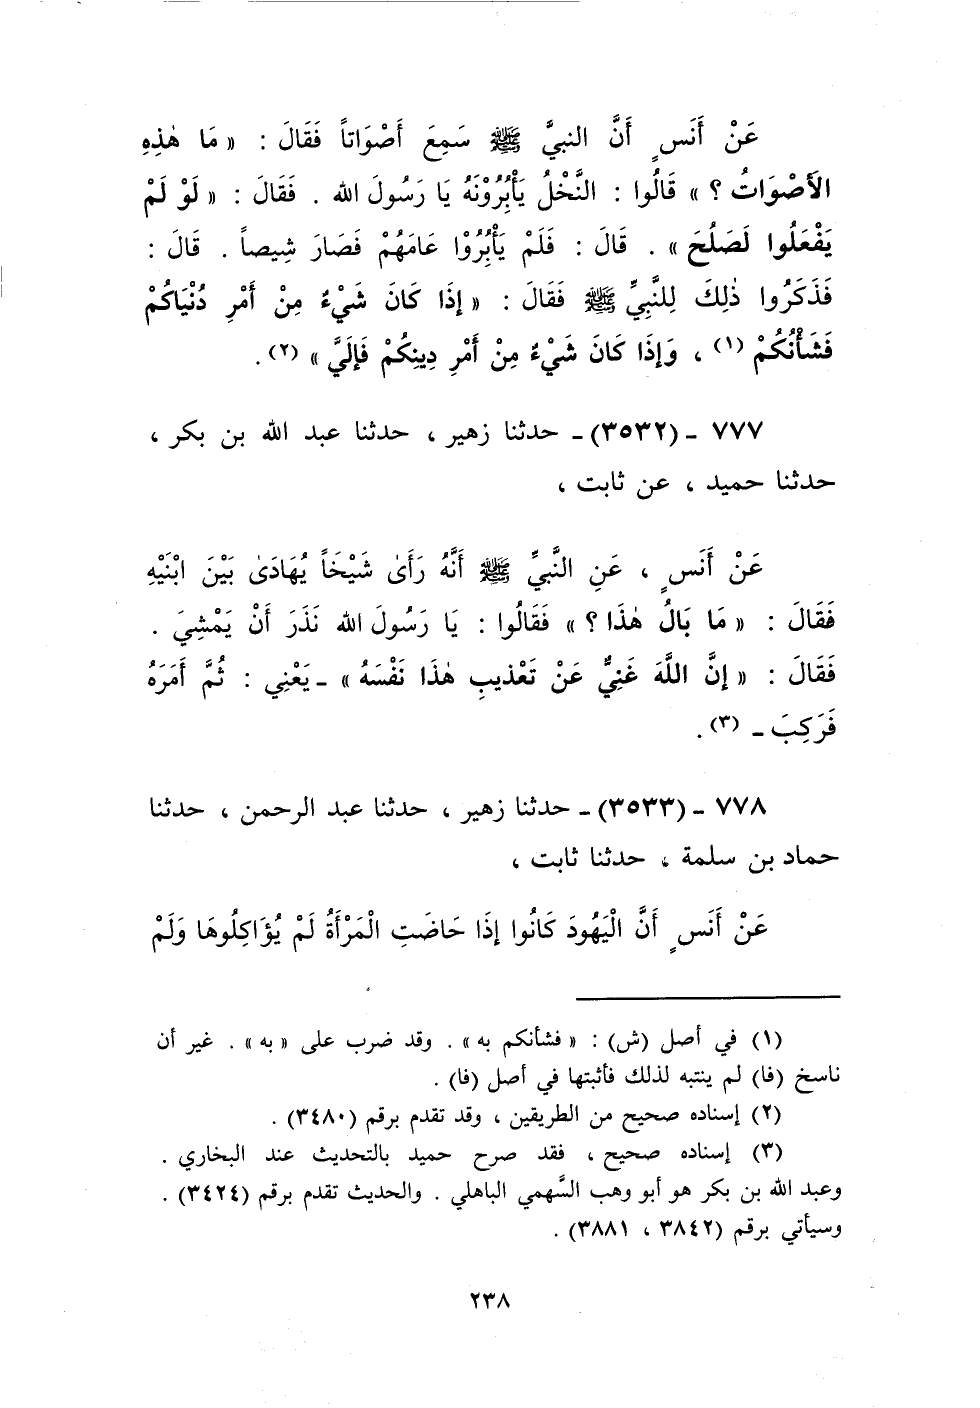 عَنْ أَنَسٍ أَنَّ النبيَّ ﷺ سَمِعَ أَصْوَاتاً فَقَالَ : « مَا هٰذِهِ
الأَصْوَاتُ ؟ » قَالُوا : النَّخْلُ يَأْبُرُوْنَهُ يَا رَسُولَ الله . فَقَالَ : « لَوْ لَمْ
يَفْعَلُوا لَصَلُحَ » . قَالَ : فَلَمْ يَأْبُرُوْا عَامَهُمْ فَصَارَ شِيصاً . قَالَ :
فَذَكَرُوا ذٰلِكَ لِلنَّبِيِّ ﷺ فَقَالَ : « إِذَا كَانَ شَيْءٌ مِنْ أَمْرِ دُنْيَاكُمْ
فَشَأْنُكُمْ (١) ، وَإِذَا كَانَ شَيْءٌ مِنْ أَمْرِ دِينِكُمْ فَإِلَيَّ » (٢) .
٧٧٧ - (٣٥٣٢) - حدثنا زهير ، حدثنا عبد الله بن بكر ،
حدثنا حميد ، عن ثابت ،
عَنْ أَنَسٍ ، عَنِ النَّبيِّ ﷺ أَنَّهُ رَأَىٰ شَيْخَاً يُهَادَىٰ بَيْنَ ابْنَيْهِ
فَقَالَ : « مَا بَالُ هٰذَا ؟ » فَقَالُوا : يَا رَسُولَ الله نَذَرَ أَنْ يَمْشِيَ .
فَقَالَ : « إِنَّ اللَّهَ غَنِيٌّ عَنْ تَعْذِيبِ هٰذَا نَفْسَهُ » - يَعْنِي : ثُمَّ أَمَرَهُ
فَرَكِبَ - (٣) .
٧٧٨ - (٣٥٣٣) - حدثنا زهير ، حدثنا عبد الرحمن ، حدثنا
حماد بن سلمة ، حدثنا ثابت ،
عَنْ أَنَسٍ أَنَّ الْيَهُودَ كَانُوا إِذَا حَاضَتِ الْمَرْأَةُ لَمْ يُؤَاكِلُوهَا وَلَمْ
(١) في أصل (ش) : « فشأنكم به » . وقد ضرب على « به » . غير أن
ناسخ (فا) لم ينتبه لذلك فأثبتها في أصل (فا) .
(٢) إسناده صحيح من الطريقين ، وقد تقدم برقم (٣٤٨٠) .
(٣) إسناده صحيح ، فقد صرح حميد بالتحديث عند البخاري .
وعبد الله بن بكر هو أبو وهب السَّهمي الباهلي . والحديث تقدم برقم (٣٤٢٤) .
وسيأتي برقم (٣٨٤٢ ، ٣٨٨١) .
٢٣٨